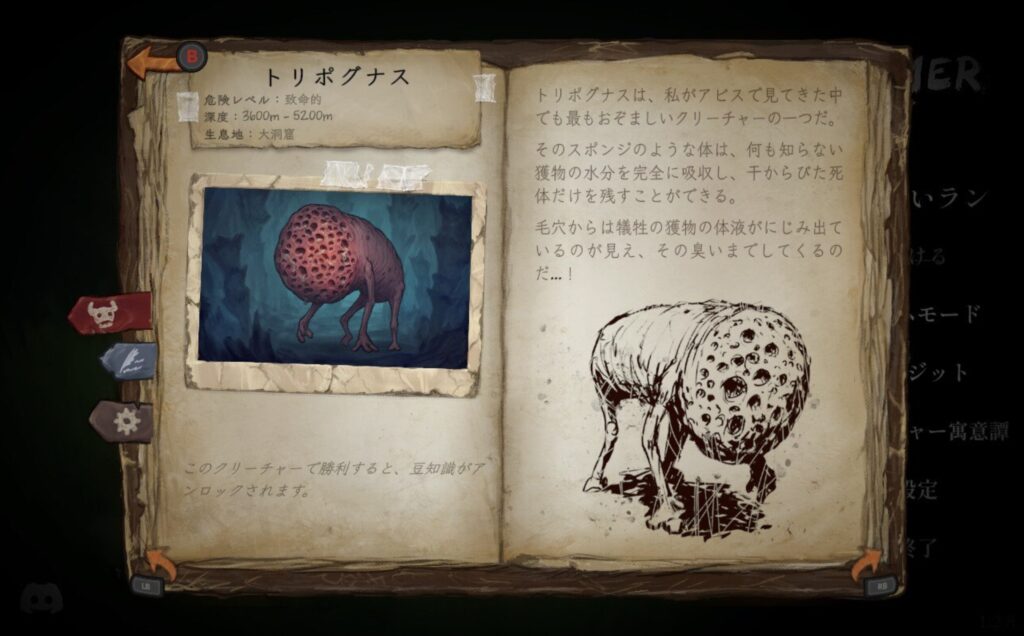 B
トリポグナス
危険レベル：致命的
深度：3600m - 5200m
生息地：大洞窟
このクリーチャーで勝利すると、豆知識がア
ンロックされます。
トリポグナスは、私がアビスで見てきた中
でも最もおぞましいクリーチャーの一つだ。
そのスポンジのような体は、何も知らない
獲物の水分を完全に吸収し、干からびた死
体だけを残すことができる。
毛穴からは犠牲の獲物の体液がにじみ出て
いるのが見え、その臭いまでしてくるの
だ…！
LB
RB
MER
いラン
ける
ムモード
ジット
ャー寓意譚
設定
終了